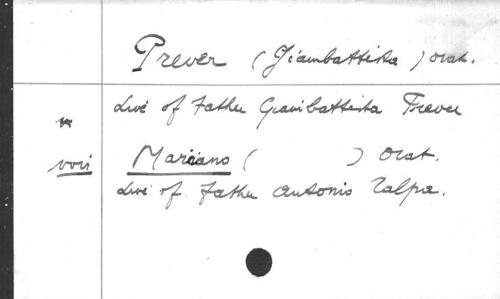 Prever (Giambattista) orat.
* Live of Father Giambattista Prever
xvii Mariano ( ) Orat.
Live of Father Antonio Talpa.